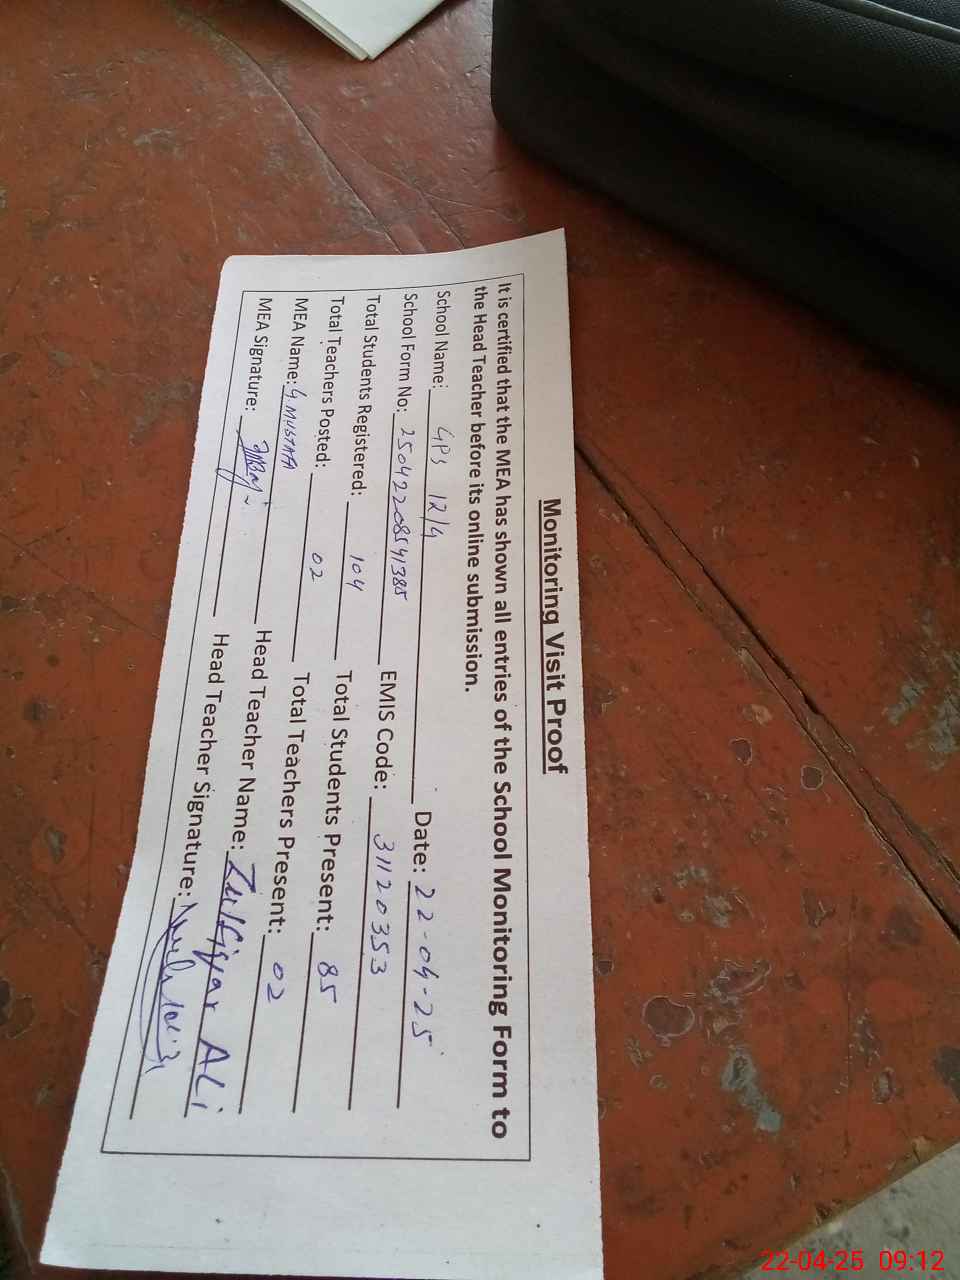 Monitoring Visit Proof
It is certified that the MEA has shown all entries of the School Monitoring Form to
the Head Teacher before its online submission.
School Name: GPS 12/4 Date: 22-04-25
School Form No: 25042208541385 EMIS Code: 31120353
Total Students Registered: 104 Total Students Present: 85
Total Teachers Posted: 02 Total Teachers Present: 02
MEA Name: G MUSTAFA Head Teacher Name: Zulfiqar Ali
MEA Signature: Head Teacher Signature:
22-04-25 09:12